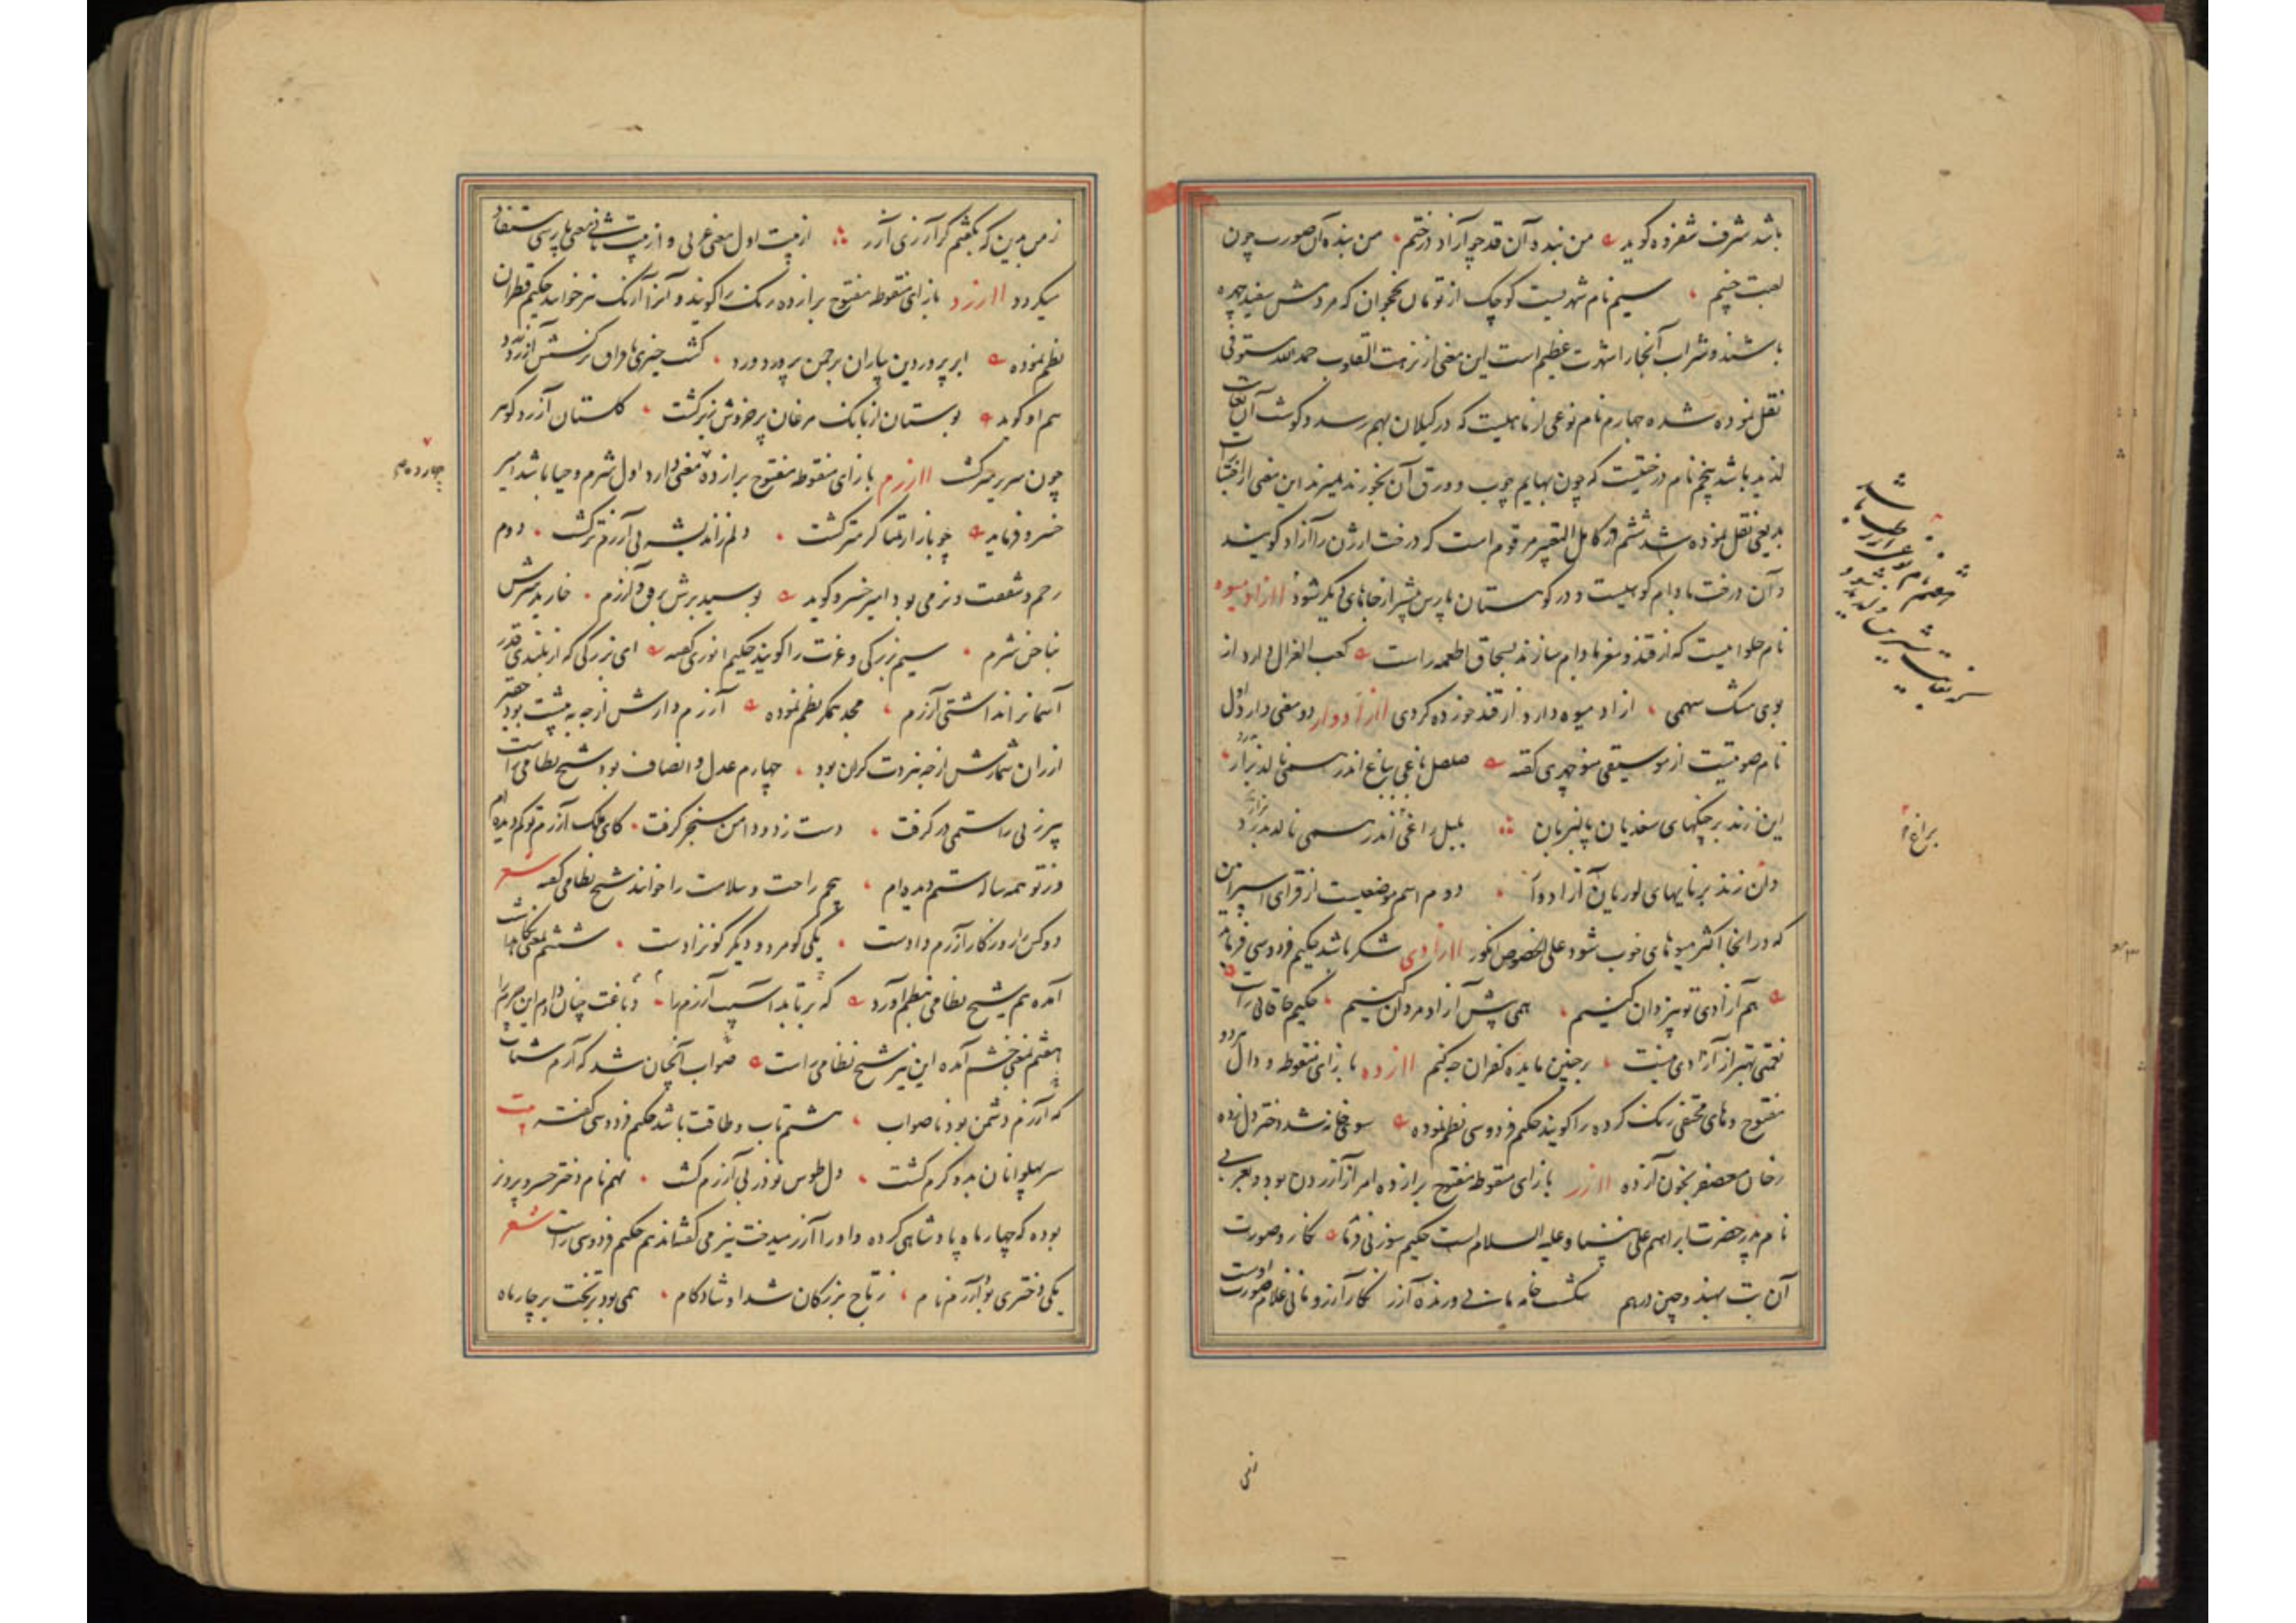 باشد شرف شفروه گوید من بنده آن قد چو آزاد درختم من بنده آن صورت چون
لعبت چینم سیم نام شهریست کوچک از تومان نخجوان که مردمش سفید چهره
باشند و شراب آنجا را شهرت عظیم است این معنی از نزهت القلوب حمدالله مستوفی
نقل نموده شده چهارم نام نوعی از ماهیست که در کیلان بهم رسد و کوشت آن بغایت
لذیذ باشد پنجم نام درختیست که چون بهایم چوب و ورق آن بخورند بمیرند این معنی از اختیارات
بدیعی نقل نموده شد ششم در کامل التعبیر مرقوم است که درخت ارژن را آزاد کویند
و آن درخت بادام کوهیست و در کوهستان پارس بیشتر از جاهای دیکر شود اازاد میوه
نام حلوائیست که از قند و مغز بادام سازند بسحاق اطعمه راست کعب الغزال دارد از
بوی مشک سهمی ازاد میوه دارد از قند خورده کردی اازادوار دو معنی دارد اول
نام صوتیست از موسیقی منوچهری گفته صلصل باغی بباغ اندر همی نالد بزار
این زند بر چنکهای سغدیان پالیزبان بلبل راغی براغ اندر همی نالد بدرد
وان زند بر نایهای لوریان آزادوار دوم اسم موضعیست از قرای اسفراین
که در انجا اکثر میوهای خوب شود علی الخصوص انکور اازادی شکر باشد حکیم فردوسی فرماید
هم آزادی تو بیزدان کنیم همی پیش آزاد مردان کنیم حکیم خاقانی راست
نعمتی بهتر از آزادی نیست بر چنین مایده کفران چکنم اازده با زای منقوطه و دال
مفتوح و های مختفی رنک کرده را کویند حکیم فردوسی نظم نموده سوی خانه شد دختر دل زده
رخان معصفر بخون آزده اازر با زای منقوطه مفتوح برا زده امر از آزردن بود و بعربی
نام پدر حضرت ابراهیم علی نبینا و علیه السلام است حکیم سوزنی فرماید
آن بت سفید و چین درهم شکست
شرم
براغ
زمن ببین که نکفتم کر آرزی آزر از بیت اول معنی عربی و از بیت ثانی معنی پارسی مستفاد
میکردد اازرد بازای منقوطه مفتوح برا زده رنک را کویند و آنرا آرنک نیز خوانند حکیم قطران
نظم نموده ابر پروردین بباران بر چمن پرورد ورد
هم او کوید بوستان از بانک مرغان پر خروش زیر کشت کلستان آزرد کوهر
چون سریر میر کشت اازرم با زای منقوطه مفتوح برا زده نه معنی دارد اول شرم و حیا باشد امیر
خسرو فرماید چو بازار تمنا کرمتر کشت دلم زاندیشه بی آزرم تر کشت دوم
رحم و شفقت و نرمی بود امیر خسرو کوید بوسید برش برفق و آزرم
بناخن نرم سیم بزرکی و عزت را کویند حکیم انوری گفته ای بزرکی که از بلندی قدر
آسمانرا نداشتی آزرم مجد همکر نظم نموده آزرم دارش ارچه به پیشت بود حقیر
ارزان شمارش ارچه بنزدت کران بود چهارم عدل و انصاف بود شیخ نظامی راست
پیرزنی را ستمی در کرفت دست زد و دامن سنجر کرفت کای ملک آزرم تو کم دیده ام
وز تو همه ساله ستم دیده ام پنجم راحت و سلامت را خوانند شیخ نظامی گفته شعر
دو کس را روزکار آزرم دادست یکی کو مرد و دیگر کو نزادست ششم بمعنی نکاهداشت
آمده هم شیخ نظامی بنظم آورده که برتابد آسیب آزرم را دباغت چنان دادم این چرم را
هفتم بمعنی خشم آمده این نیز شیخ نظامی راست صواب آنچنان شد که آرم شتاب
که آزرم دشمن بود ناصواب هشتم تاب و طاقت باشد حکیم فردوسی گفته بیت
سر پهلوانان بدو کرم کشت دل طوس نوذر بی آزرم کشت نهم نام دختر خسرو پرویز
بوده که چهار ماه پادشاهی کرده و او را آزرمیدخت نیز می کفته‌اند هم حکیم فردوسی راست شعر
یکی دختری بود آزرم نام ز تاج بزرکان شد او شادکام همی بود بر تخت بر چار ماه